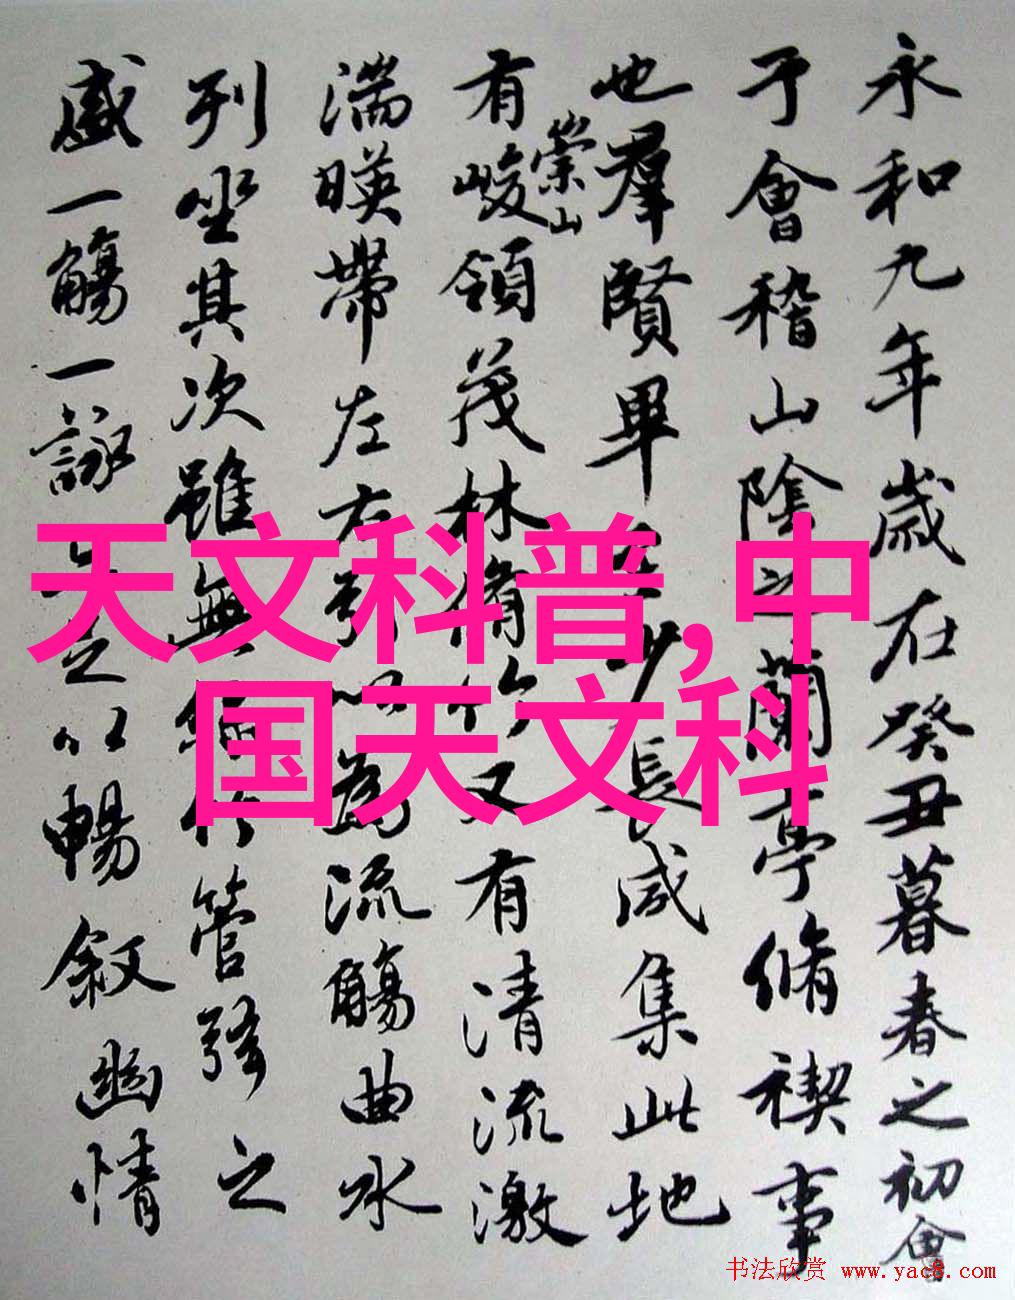 永和九年歲在癸丑暮春之初會
于會稽山陰之蘭亭脩禊事
也羣賢畢至少長咸集此地
有崇山峻領茂林脩竹又有清流激
湍暎帶左右引以為流觴曲水
列坐其次雖無絲竹管弦之
盛一觴一詠亦足以暢敘幽情
天文科普,中
国天文科
书法欣赏 www.yac8.com